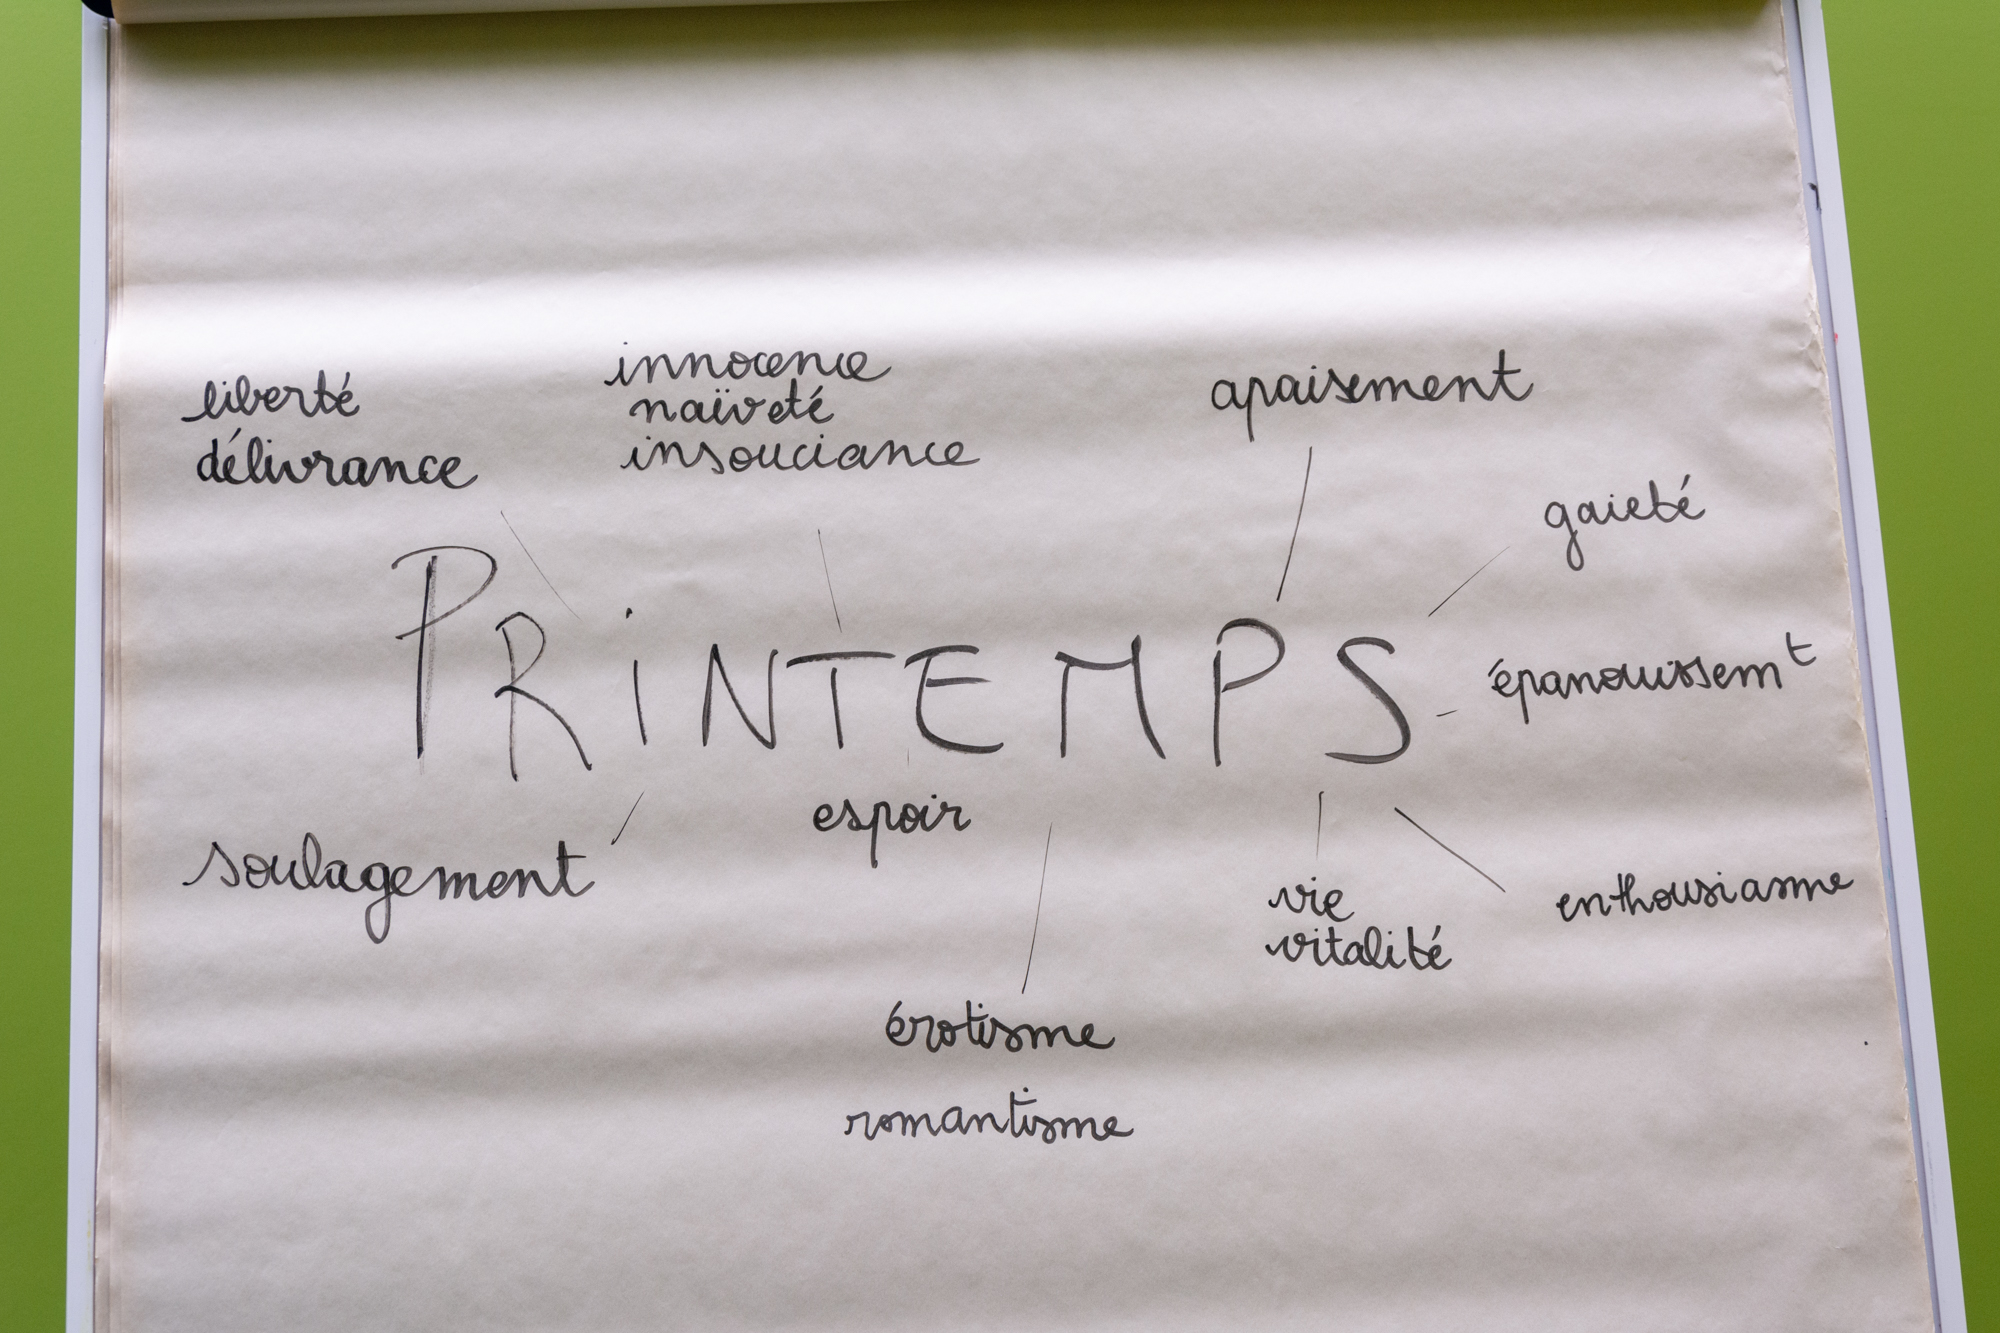 liberté
délivrance
innocence
naïveté
insouciance
apaisement
gaieté
PRiNTEMPS
épanouissemt
soulagement
espoir
vie
vitalité
enthousiasme
érotisme
romantisme